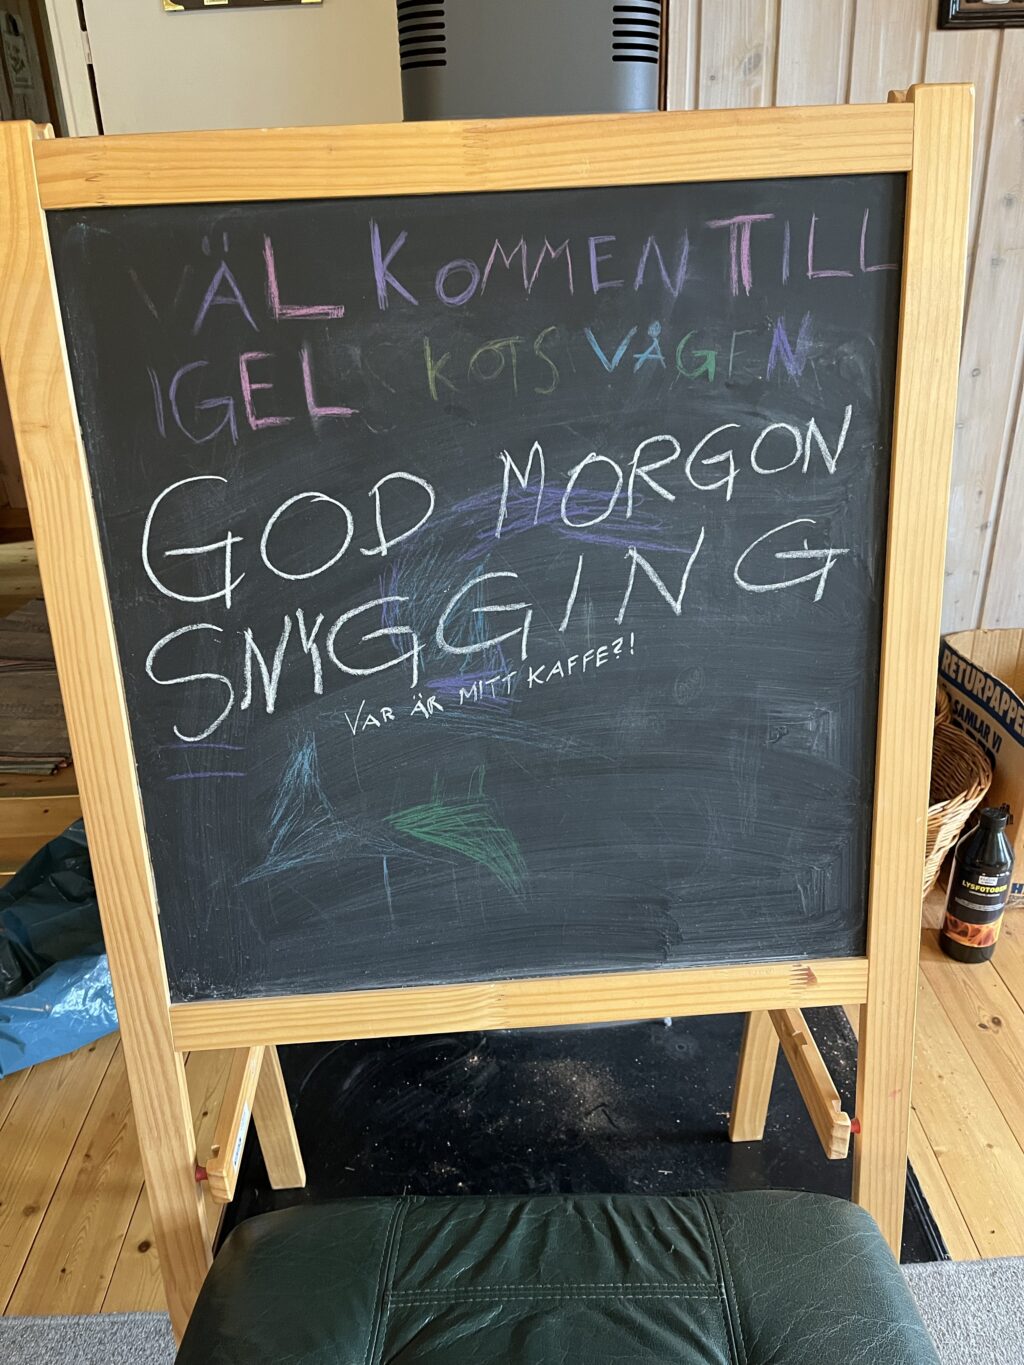 VÄLKOMMEN TILL
IGELKOTSVÄGEN
GOD MORGON
SNYGGING
VAR ÄR MITT KAFFE?!
RETURPAPPER
SAMLAR VI
LYSFOTOGEN